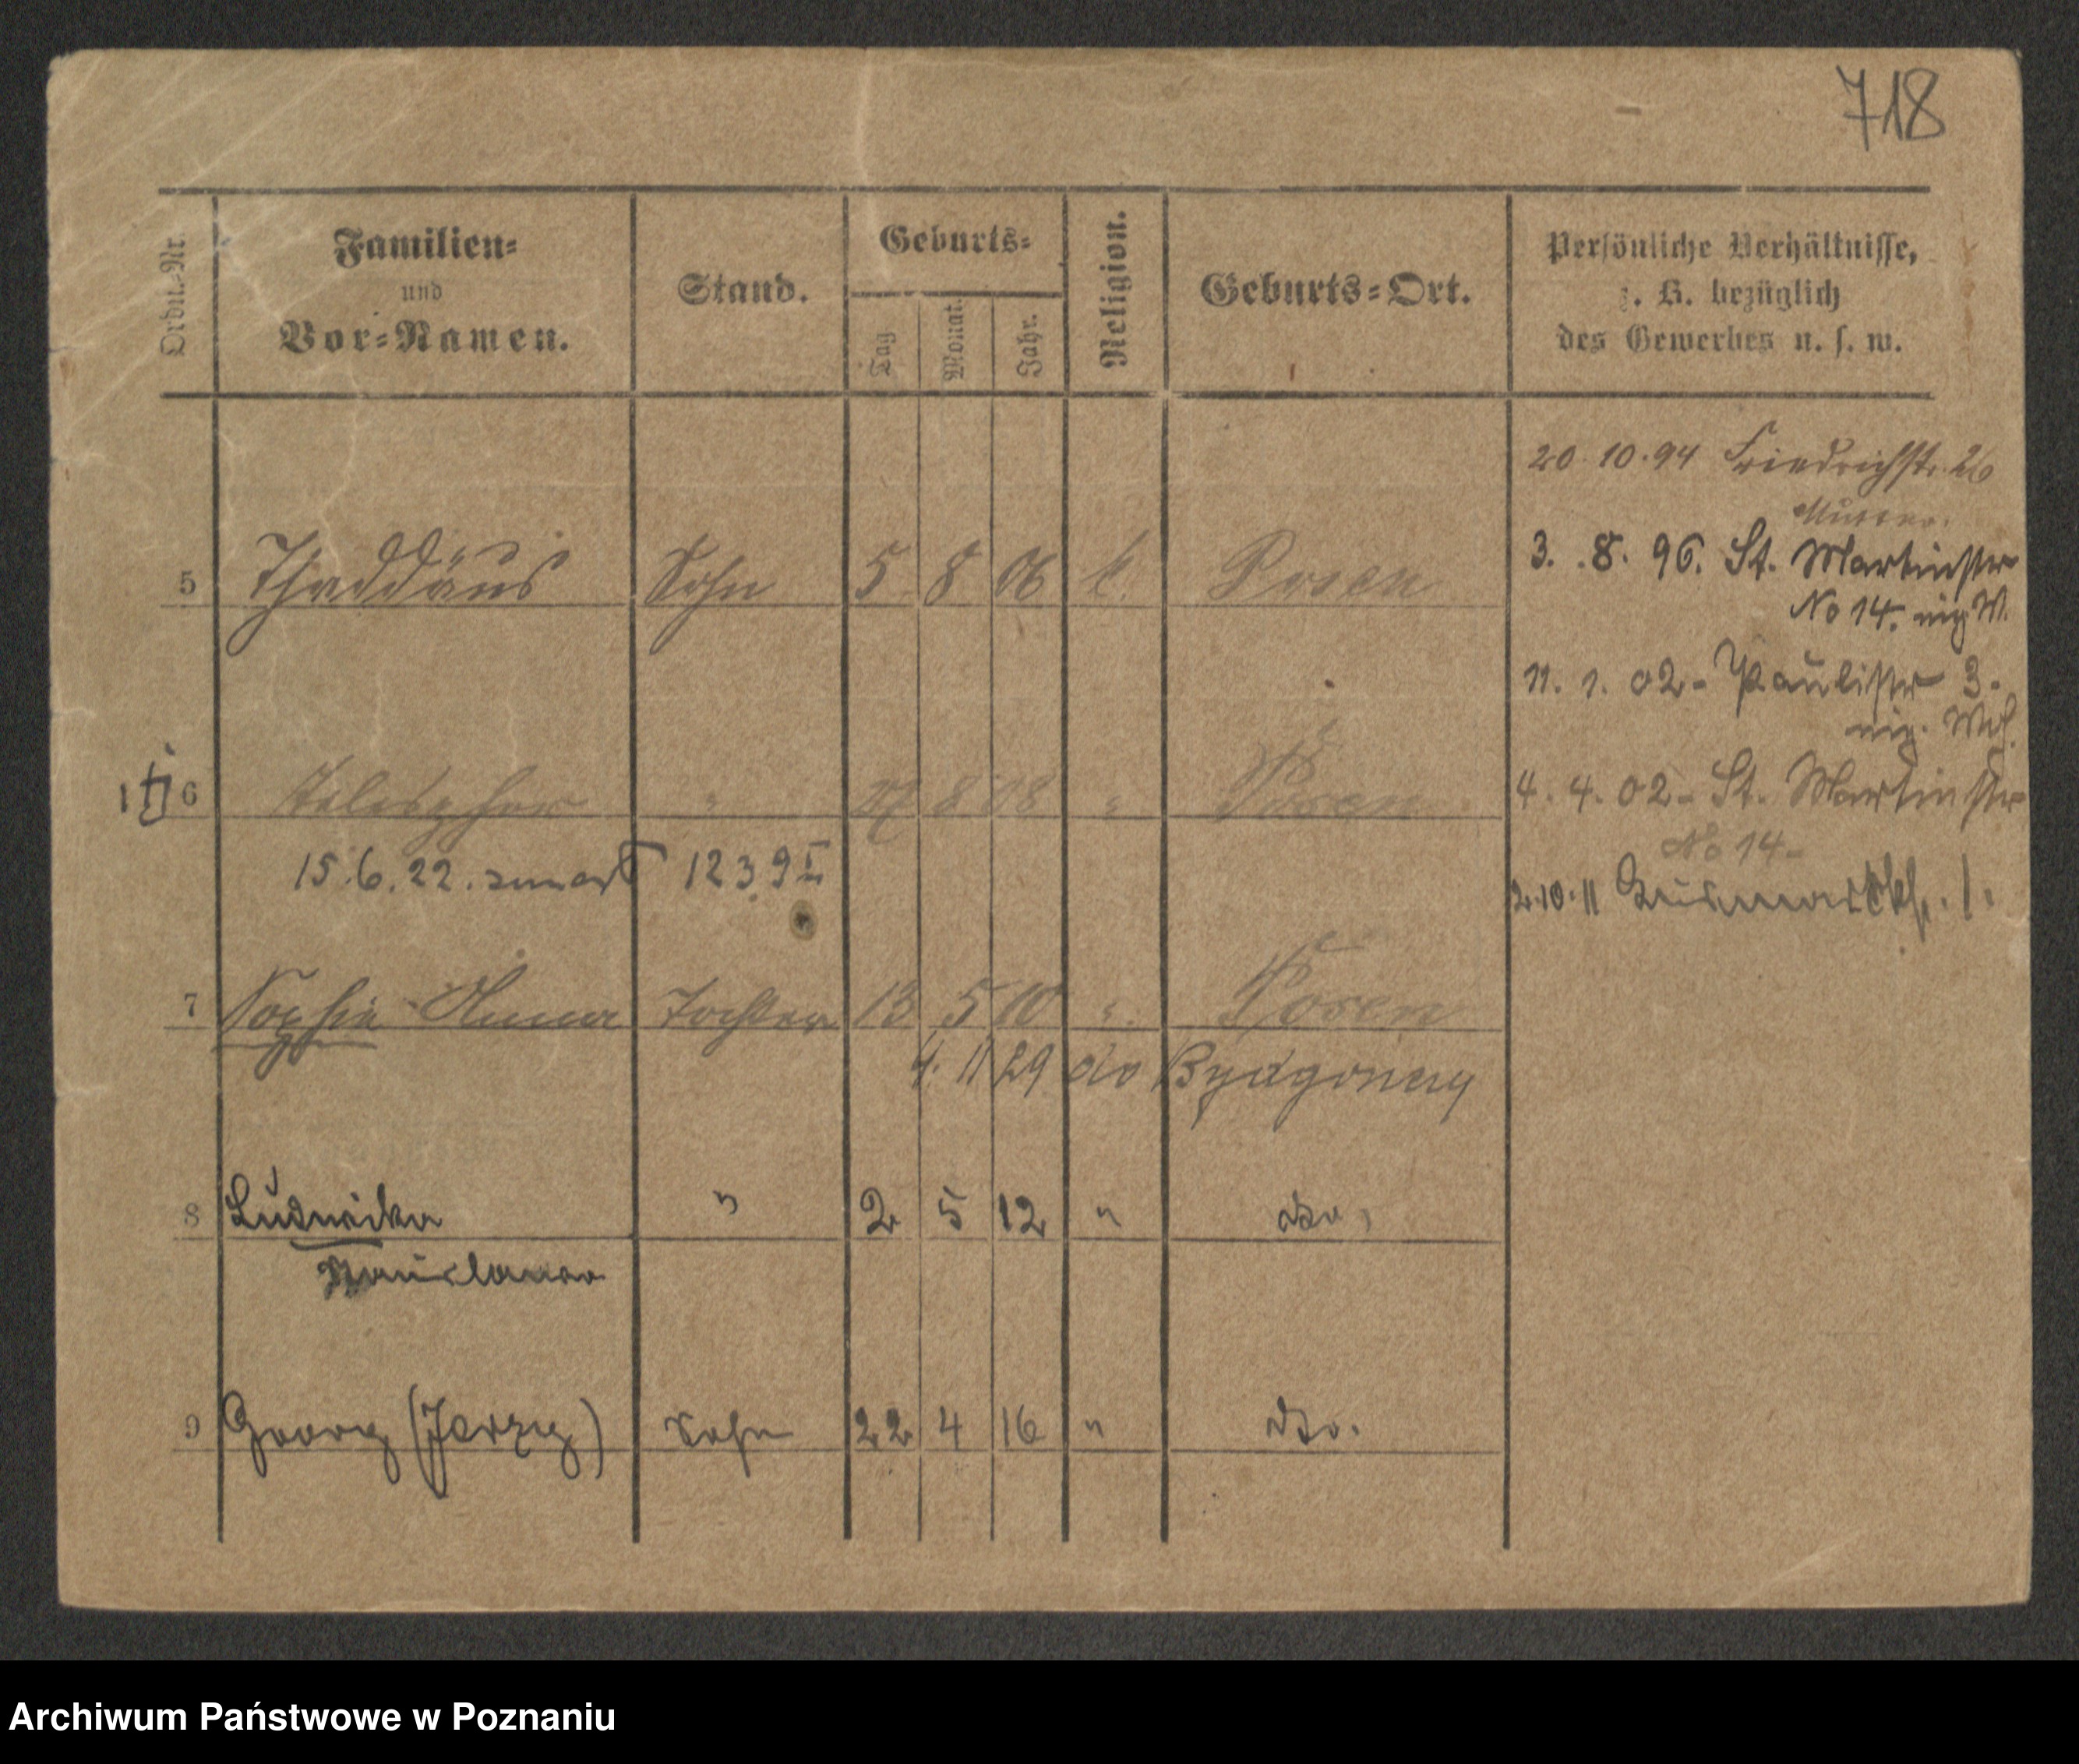 718
Ordn.-Nr.
Familien-
und
Vor-Namen.
Stand.
Geburts-
Tag
Monat.
Jahr.
Religion.
Geburts-Ort.
Persönliche Verhältnisse,
z. B. bezüglich
des Gewerbes u. s. w.
20.10.94 Friedrichstr. 26
3. 8. 96. St. Martinstr
No 14. eig W.
11. 1. 02 - Paulistr 3.
eig. Wg.
4. 4. 02 - St. Martinstr
No 14 -
2.10.11 Bismarckst. 1.
5 Thaddäus Sohn 5 8 06 k. Posen
6 Telesphor " 27 8 08 " Posen
15.6.22. zmarł 1239 II
7 Sophie Anna Tochter 13 5 10 " Posen
4. 11 29 do Bydgoszczy
8 Ludwika " 2 5 12 " dto.
Stanislawa
9 Georg (Jerzy) Sohn 22 4 16 " dto.
Archiwum Państwowe w Poznaniu